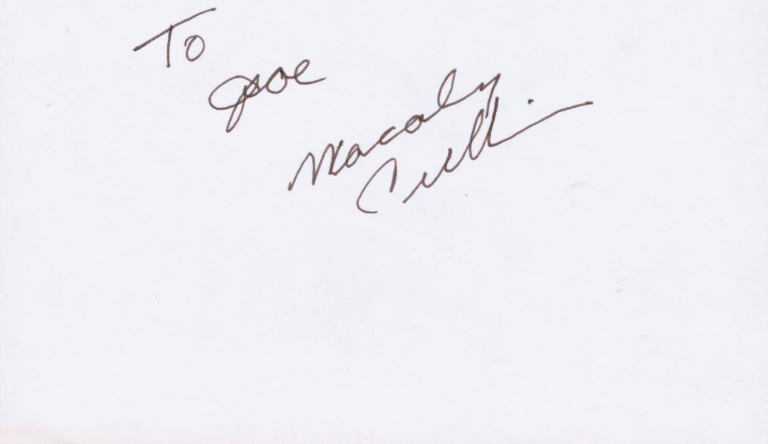 To
Joe
Macaulay
Culkin